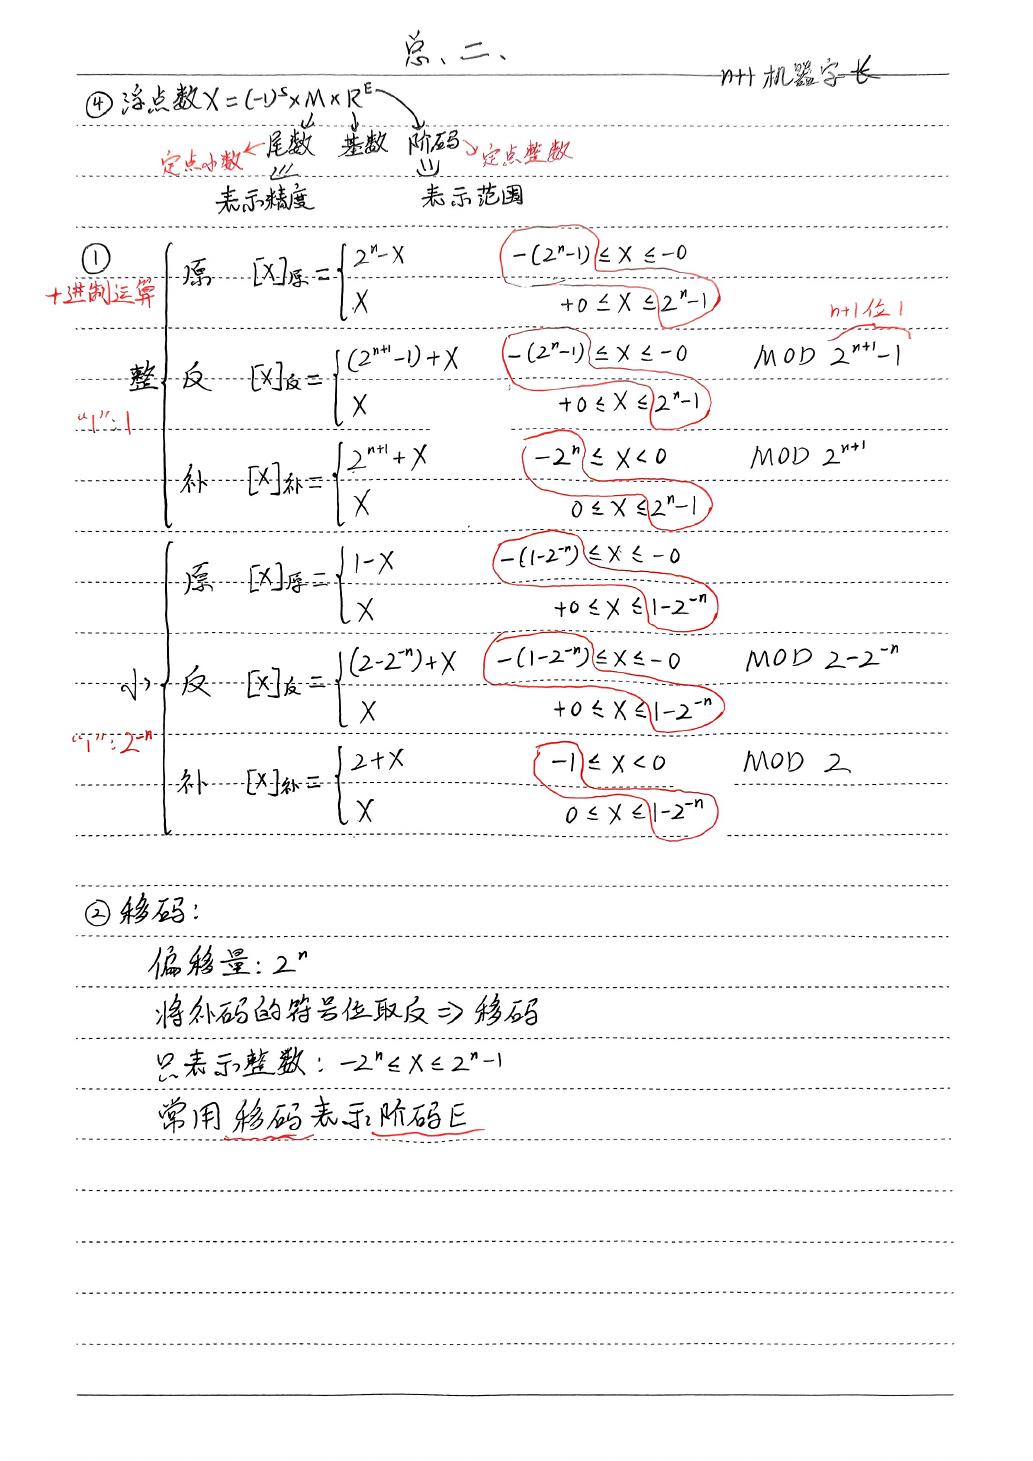 总、二、
n+1 机器字长
④ 浮点数 X = (-1)^S × M × R^E
定点小数 ← 尾数 基数 阶码 → 定点整数
表示精度 表示范围
①
十进制运算
整
"1":1
原 [X]原 = { 2^n - X -(2^n-1) ≤ X ≤ -0
X +0 ≤ X ≤ 2^n-1
n+1位1
反 [X]反 = { (2^{n+1}-1)+X -(2^n-1) ≤ X ≤ -0 MOD 2^{n+1}-1
X +0 ≤ X ≤ 2^n-1
补 [X]补 = { 2^{n+1}+X -2^n ≤ X < 0 MOD 2^{n+1}
X 0 ≤ X ≤ 2^n-1
小
"1":2^{-n}
原 [X]原 = { 1-X -(1-2^{-n}) ≤ X ≤ -0
X +0 ≤ X ≤ 1-2^{-n}
反 [X]反 = { (2-2^{-n})+X -(1-2^{-n}) ≤ X ≤ -0 MOD 2-2^{-n}
X +0 ≤ X ≤ 1-2^{-n}
补 [X]补 = { 2+X -1 ≤ X < 0 MOD 2
X 0 ≤ X ≤ 1-2^{-n}
② 移码:
偏移量: 2^n
将补码的符号位取反 => 移码
只表示整数: -2^n ≤ X ≤ 2^n-1
常用移码表示阶码E